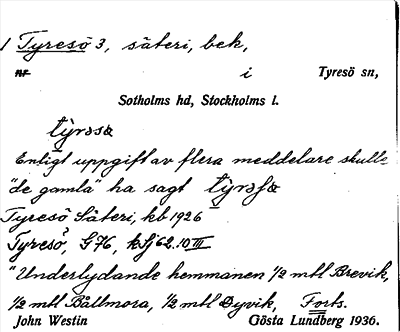 1 Tyresö 3, säteri, bek,
nr i Tyresö sn,
Sotholms hd, Stockholms l.
tỳrəsə
Enligt uppgift av flera meddelare skulle
"de gamla" ha sagt
Tyresö Säteri, kb 1926
Tyresö, G76, kfj 62:10 III
"Underlydande hemmanen 1/2 mtl Brevik,
1/2 mtl Bållmora, 1/2 mtl Dyvik, Forts.
John Westin Gösta Lundberg 1936.